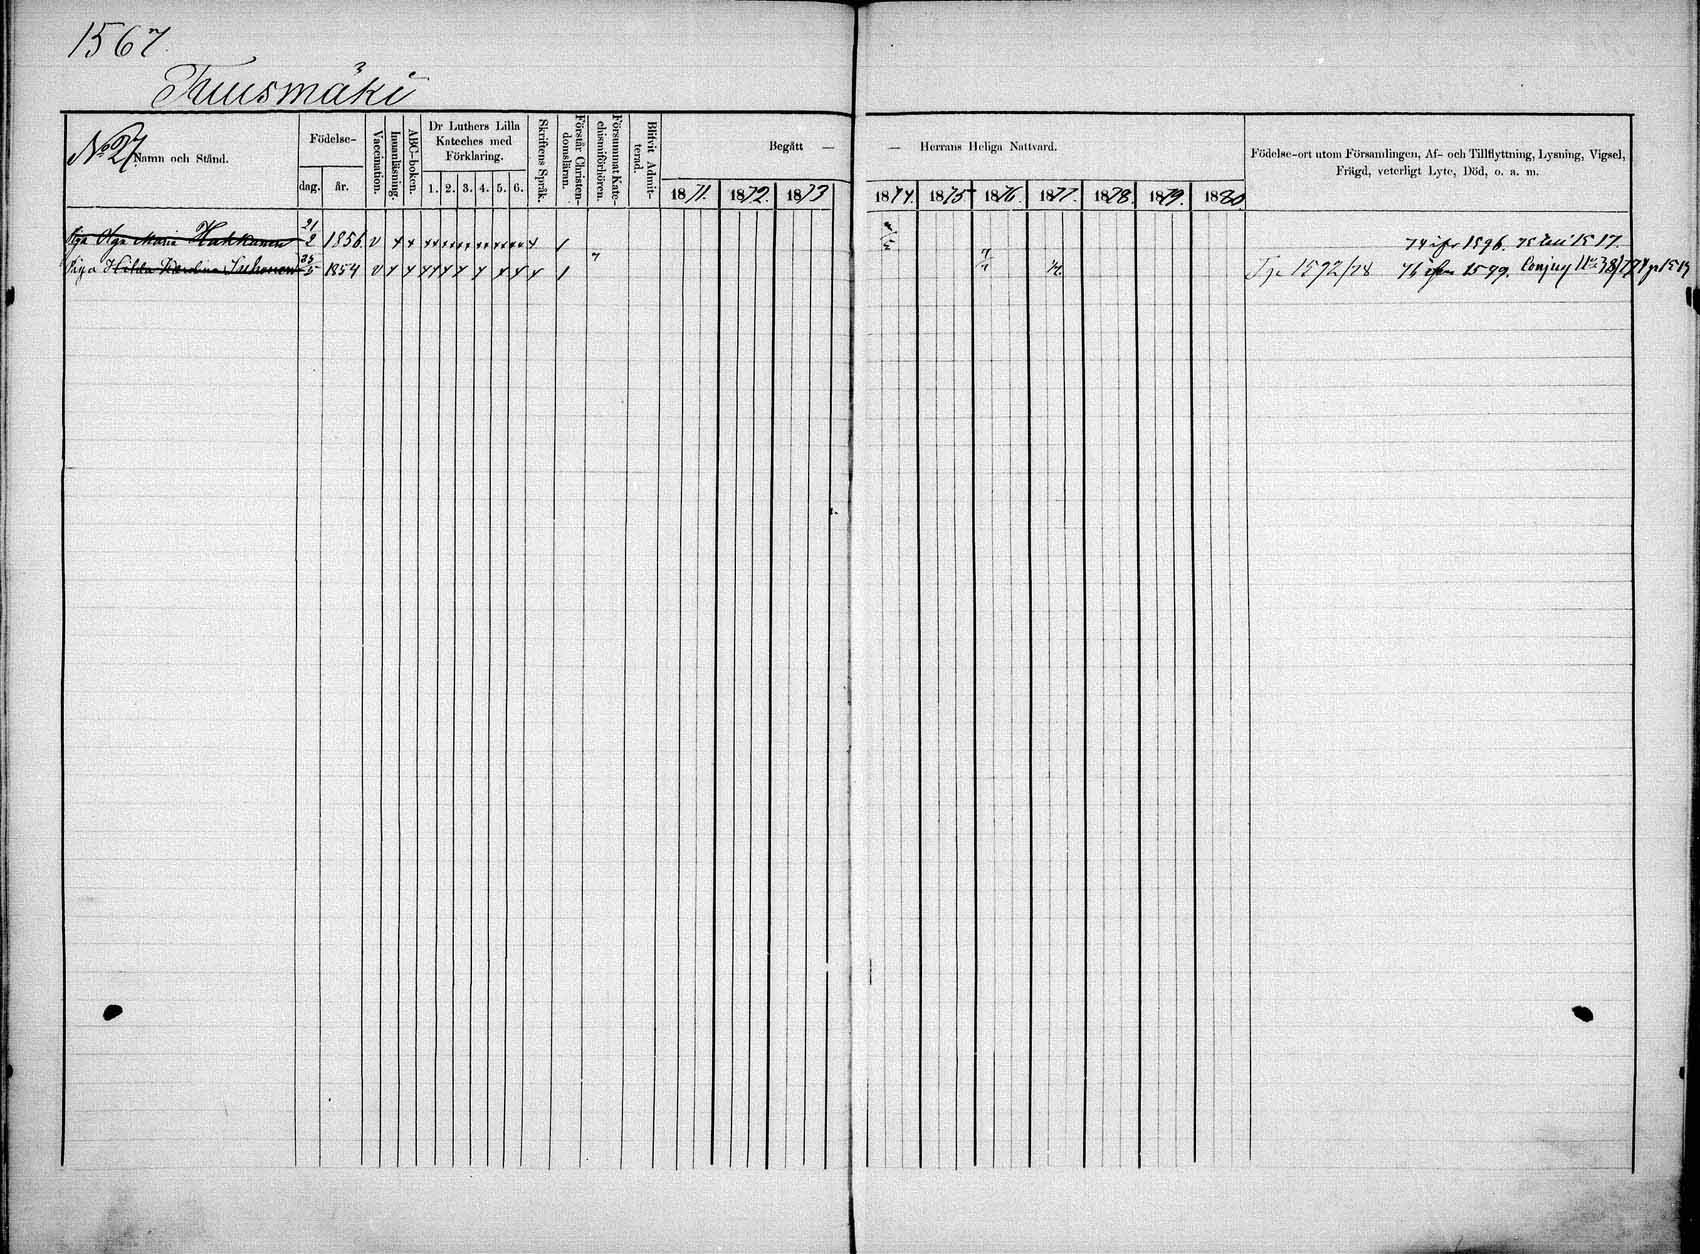 1567
Tuusmäki
No 27.
Namn och Stånd.
Födelse-
dag. år.
Vaccination.
Innanläsning.
ABC-boken.
Dr Luthers Lilla
Kateches med
Förklaring.
1. 2. 3. 4. 5. 6.
Skriftens Språk.
Förstår Christen-
domsläran.
Försummat Kate-
chismiförhören.
Blifvit Admit-
terad.
Begått —
— Herrans Heliga Nattvard.
1871. 1872. 1873
1874. 1875 1876. 1877. 1878. 1879. 1880
Födelse-ort utom Församlingen, Af- och Tillflyttning, Lysning, Vigsel,
Frägd, veterligt Lyte, Död, o. a. m.
Piga Olga Maria Hakkanen 21/2 1856. v x x x x x x x x x 1 74 ifr 1596. 75 till 1517.
Piga Hilda Karolina Suhonen 1854 v x x x x x x x x x 1 1592/78 76 ifrån 1599.